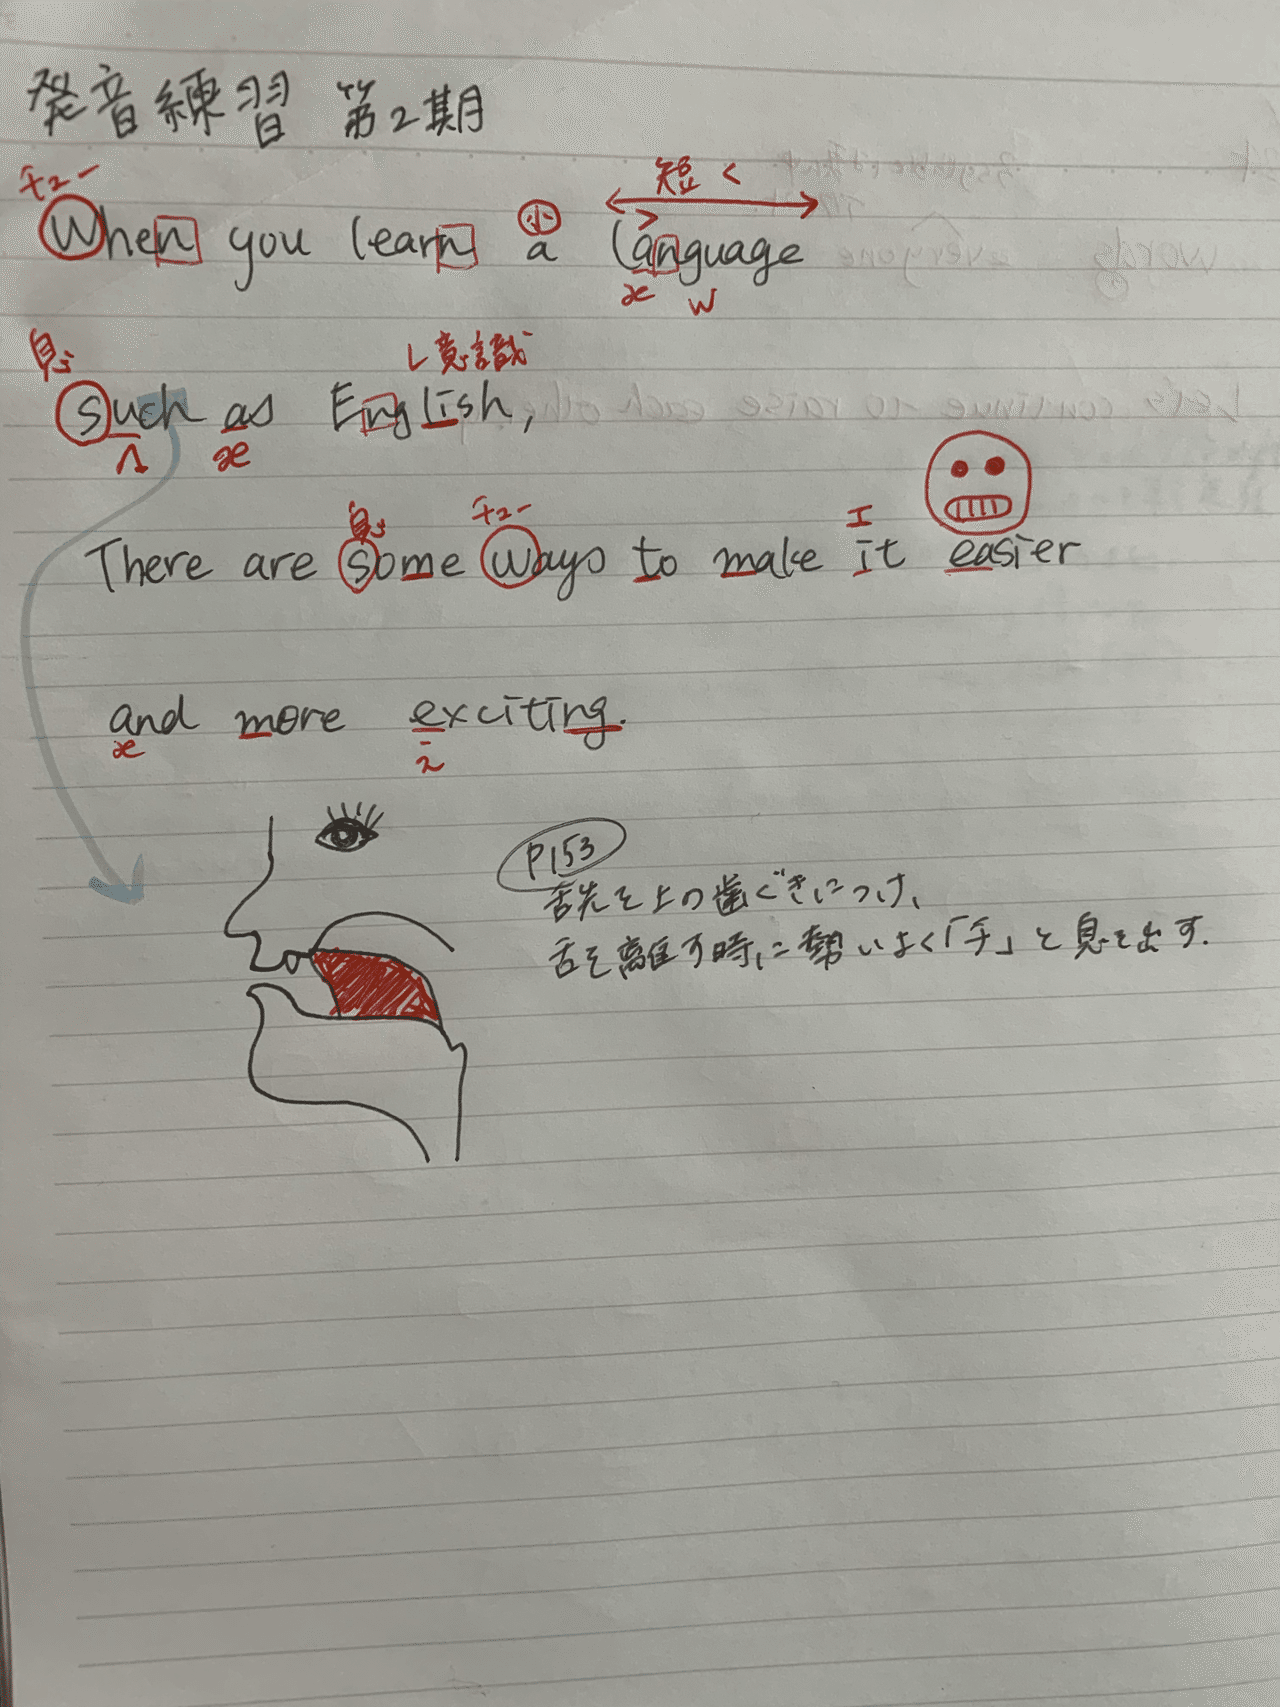 発音練習 第2期
チュー 短く
When you learn a language
小
æ w
息 L意識
such as English,
ʌ æ
息 チュー I
There are some ways to make it easier
and more exciting.
æ i
P153
舌先を上の歯ぐきにつけ、
舌を離す時に勢いよく「チ」と息を出す.